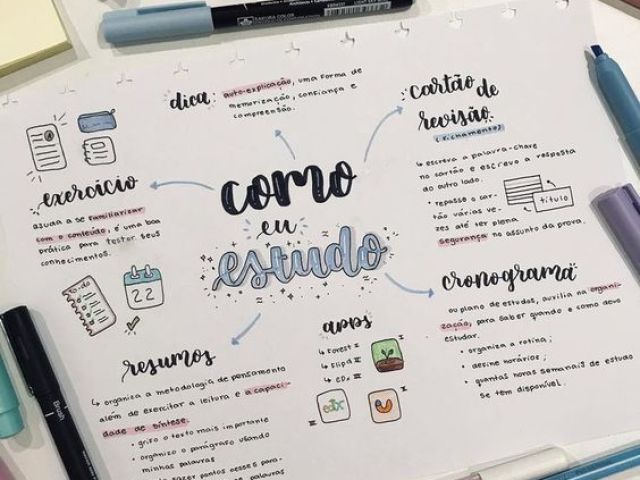 dica
auto-explicação, uma forma de
memorização, confiança e
compreensão.
cartão de
revisão
(fichamento)
↳ escreva a palavra-chave
no cartão e escreva a resposta
ao outro lado.
• repasse o car-
tão várias ve-
zes até ter plena
segurança no assunto da prova.
título
exercício
ajuda a se familiarizar
com o conteúdo, é uma boa
prática para testar seus
conhecimentos.
como
eu
estudo
cronograma
ou plano de estudos, auxilia na organi-
zação, para saber quando e como devo
estudar.
• organiza a rotina;
• define horários;
• quantas horas semanais de estudo
se tem disponível.
to-do
22
resumos
↳ organiza a metodologia de pensamento
além de exercitar a leitura e a capaci-
dade de síntese.
• grifo o texto mais importante
• organizo o parágrafo usando
minhas palavras
fazer pontos desses pará-
apps
↳ Forest I
↳ Flipd II
↳ EDx III
I
edx
III
II
SAKURA COLOR
Brush